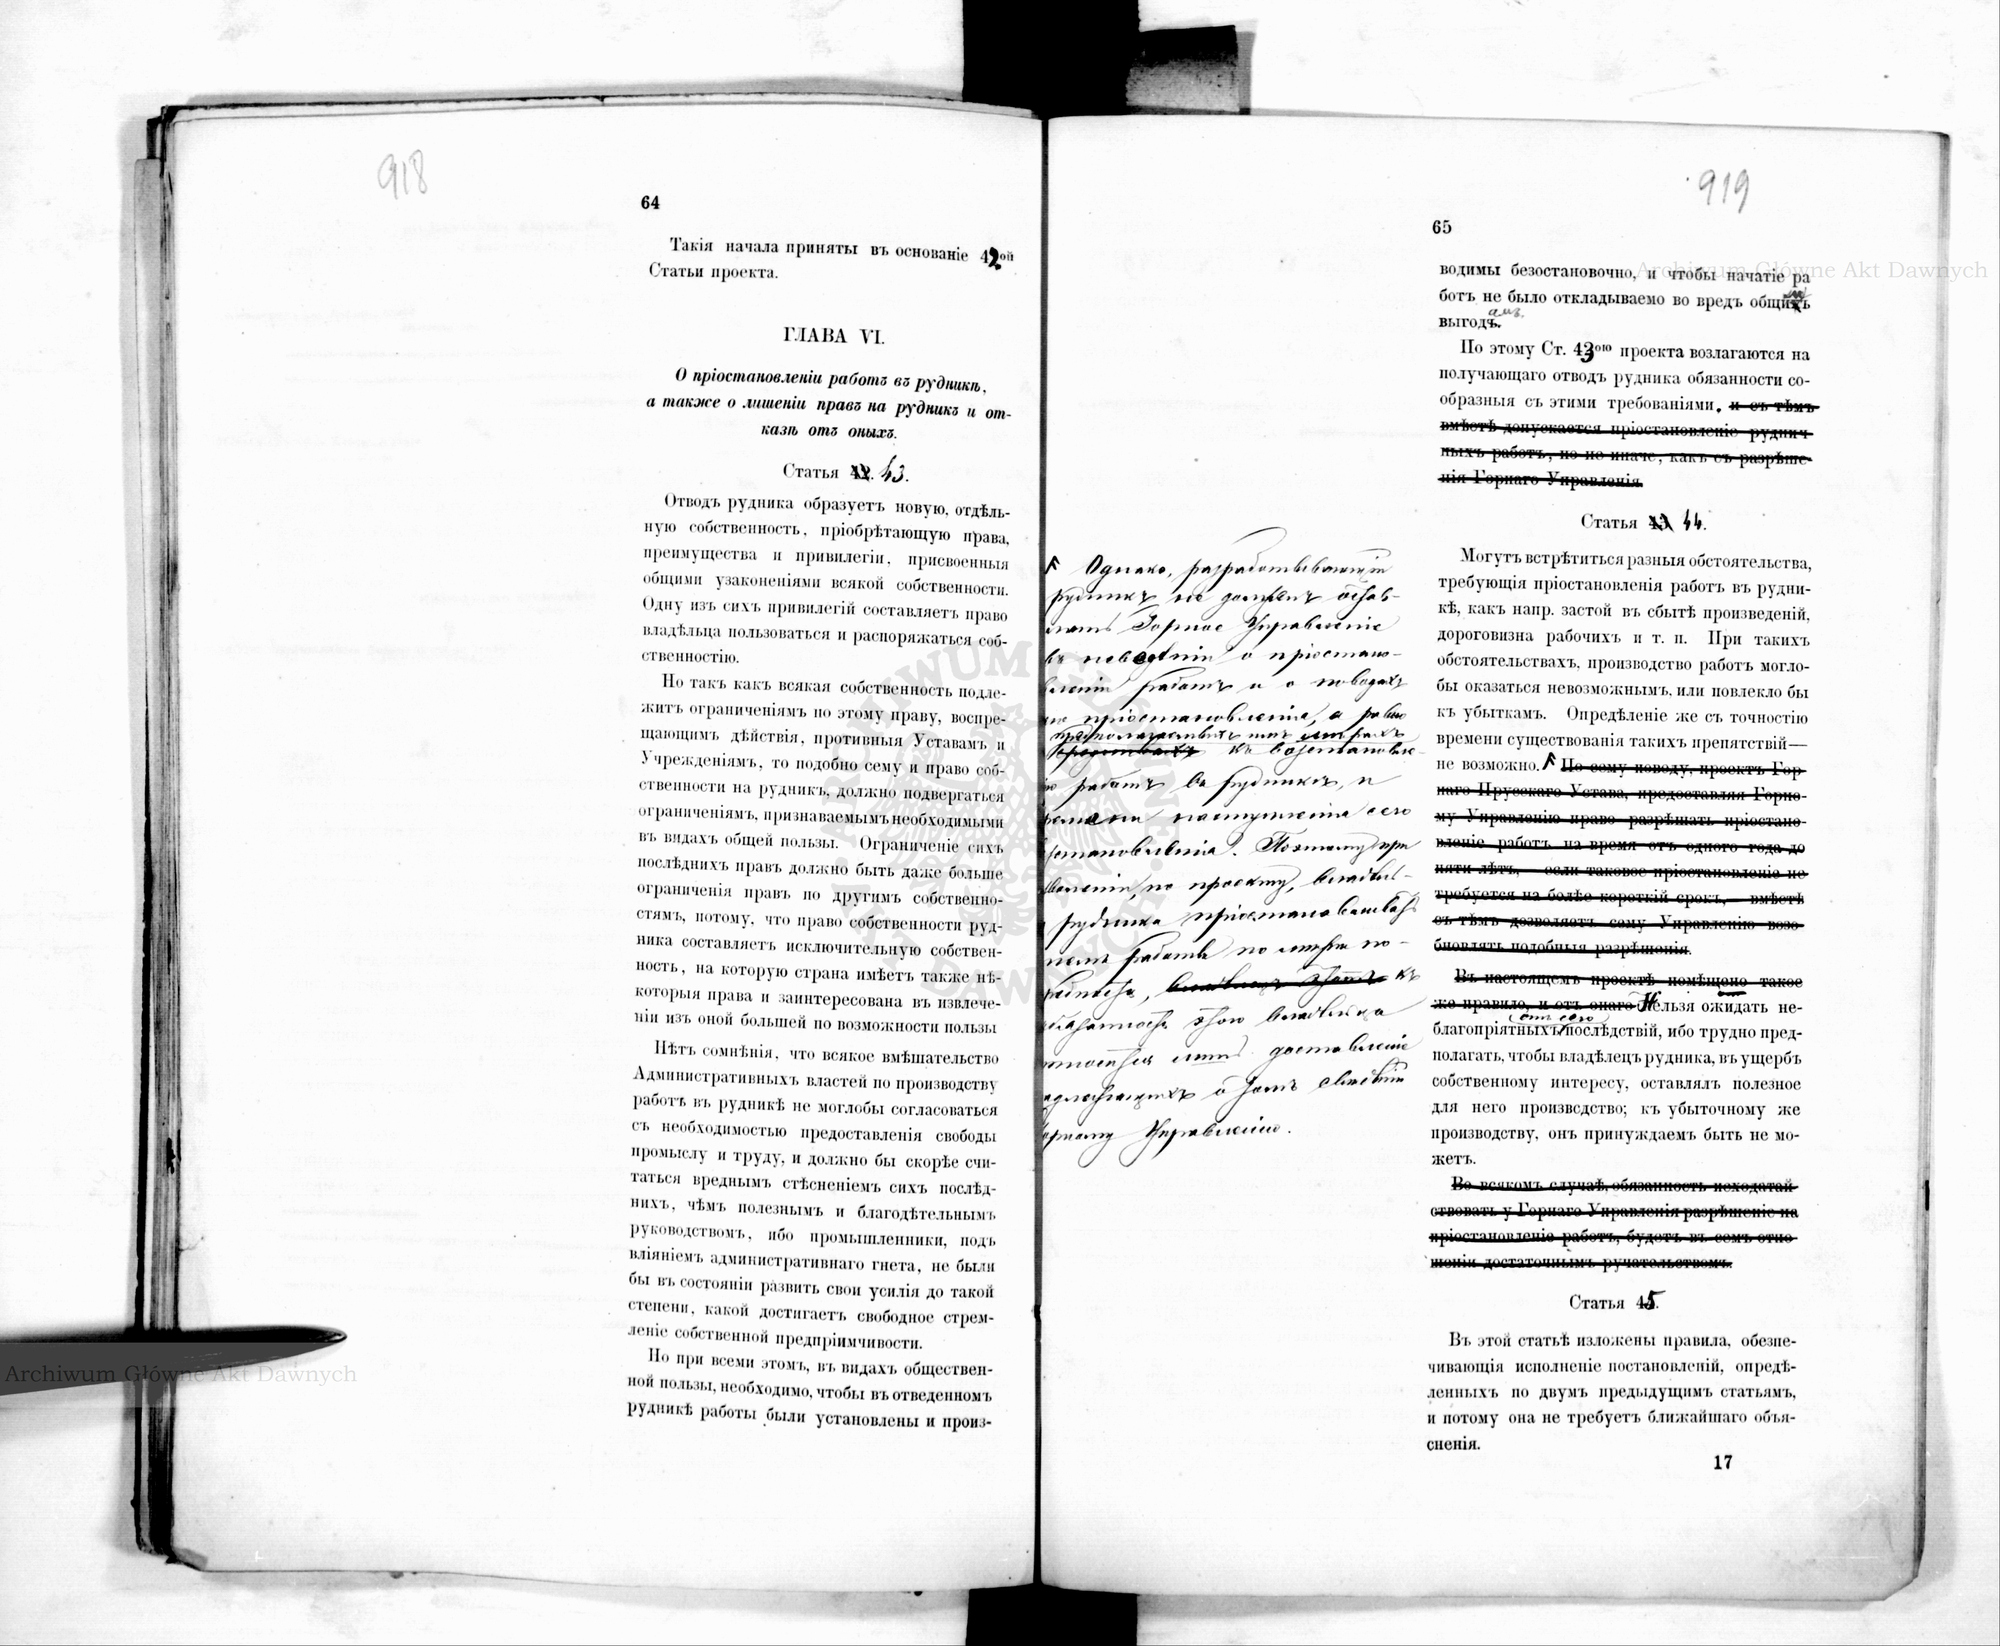 918
64
Такія начала приняты въ основаніе 42ой
Статьи проекта.
ГЛАВА VI.
О пріостановленіи работъ въ рудникѣ,
а также о лишеніи правъ на рудникъ и от-
казѣ отъ оныхъ.
Статья 42. 43.
Отводъ рудника образуетъ новую, отдѣль-
ную собственность, пріобрѣтающую права,
преимущества и привилегіи, присвоенныя
общими узаконеніями всякой собственности.
Одну изъ сихъ привилегій составляетъ право
владѣльца пользоваться и распоряжаться соб-
ственностію.
Но такъ какъ всякая собственность подле-
житъ ограниченіямъ по этому праву, воспре-
щающимъ дѣйствія, противныя Уставамъ и
Учрежденіямъ, то подобно сему и право соб-
ственности на рудникъ, должно подвергаться
ограниченіямъ, признаваемымъ необходимыми
въ видахъ общей пользы. Ограниченіе сихъ
послѣднихъ правъ должно быть даже больше
ограниченія правъ по другимъ собственно-
стямъ, потому, что право собственности руд-
ника составляетъ исключительную собствен-
ность, на которую страна имѣетъ также нѣ-
которыя права и заинтересована въ извлече-
ніи изъ оной большей по возможности пользы
Нѣтъ сомнѣнія, что всякое вмѣшательство
Административныхъ властей по производству
работъ въ рудникѣ не моглобы согласоваться
съ необходимостью предоставленія свободы
промыслу и труду, и должно бы скорѣе счи-
таться вреднымъ стѣсненіемъ сихъ послѣд-
нихъ, чѣмъ полезнымъ и благодѣтельнымъ
руководствомъ, ибо промышленники, подъ
вліяніемъ административнаго гнета, не были
бы въ состояніи развить свои усилія до такой
степени, какой достигаетъ свободное стрем-
леніе собственной предпріимчивости.
Но при всеми этомъ, въ видахъ обществен-
ной пользы, необходимо, чтобы въ отведенномъ
рудникѣ работы были установлены и произ-
919
65
водимы безостановочно, и чтобы начатіе ра
ботъ не было откладываемо во вредъ общихъ
амъ.
выгодъ.
По этому Ст. 43ою проекта возлагаются на
получающаго отводъ рудника обязанности со-
образныя съ этими требованіями. и съ тѣмъ
вмѣстѣ допускается пріостановленіе руднич
ныхъ работъ, но не иначе, какъ съ разрѣше-
нія Горнаго Управленія
Статья 43 44.
Могутъ встрѣтиться разныя обстоятельства,
требующія пріостановленія работъ въ рудни-
кѣ, какъ напр. застой въ сбытѣ произведеній,
дороговизна рабочихъ и т. п. При такихъ
обстоятельствахъ, производство работъ могло-
бы оказаться невозможнымъ, или повлекло бы
къ убыткамъ. Опредѣленіе же съ точностію
времени существованія такихъ препятствій—
не возможно. По сему поводу, проектъ Гор-
наго Прусскаго Устава, предоставляя Горно-
му Управленію право разрѣшать пріостано-
вленіе работъ на время отъ одного года до
пяти лѣтъ, если таковое пріостановленіе не
требуется на болѣе короткій срокъ, — вмѣстѣ
съ тѣмъ дозволяетъ сему Управленію возо-
бновлять подобныя разрѣшенія.
Въ настоящемъ проектѣ помѣщено такое
же правило, и отъ онаго Нельзя ожидать не-
отъ сего
благопріятныхъ послѣдствій, ибо трудно пред-
полагать, чтобы владѣлецъ рудника, въ ущербъ
собственному интересу, оставлялъ полезное
для него производство; къ убыточному же
производству, онъ принуждаемъ быть не мо-
жетъ.
Во всякомъ случаѣ, обязанность исходатай
ствовать у Горнаго Управленія разрѣшеніе на
пріостановленіе работъ, будетъ въ семъ отно
шеніи достаточнымъ ручательствомъ.
Статья 45.
Въ этой статьѣ изложены правила, обезпе-
чивающія исполненіе постановленій, опредѣ-
ленныхъ по двумъ предыдущимъ статьямъ,
и потому она не требуетъ ближайшаго объя-
сненія.
17
Однако, разработывающій
рудникъ не долженъ остав-
лять Горное Управленіе
въ невѣдѣніи о пріостано-
вленіи работъ и о поводахъ
пріостановленія, а равно
предполагаемыхъ имъ мѣрахъ
къ возстановле-
работъ въ рудникѣ, и
наступленія сего
возстановленія. Поэтому при
по проекту, владѣль-
рудника пріостанавливать
работы по мѣрѣ по-
къ
обязанности этого владѣльца
доставленіе
надлежащихъ о томъ свѣдѣній
Горному Управленію.
Archiwum Główne Akt Dawnych
Archiwum Główne Akt Dawnych
ARCHIWUM GŁÓWNE AKT DAWNYCH